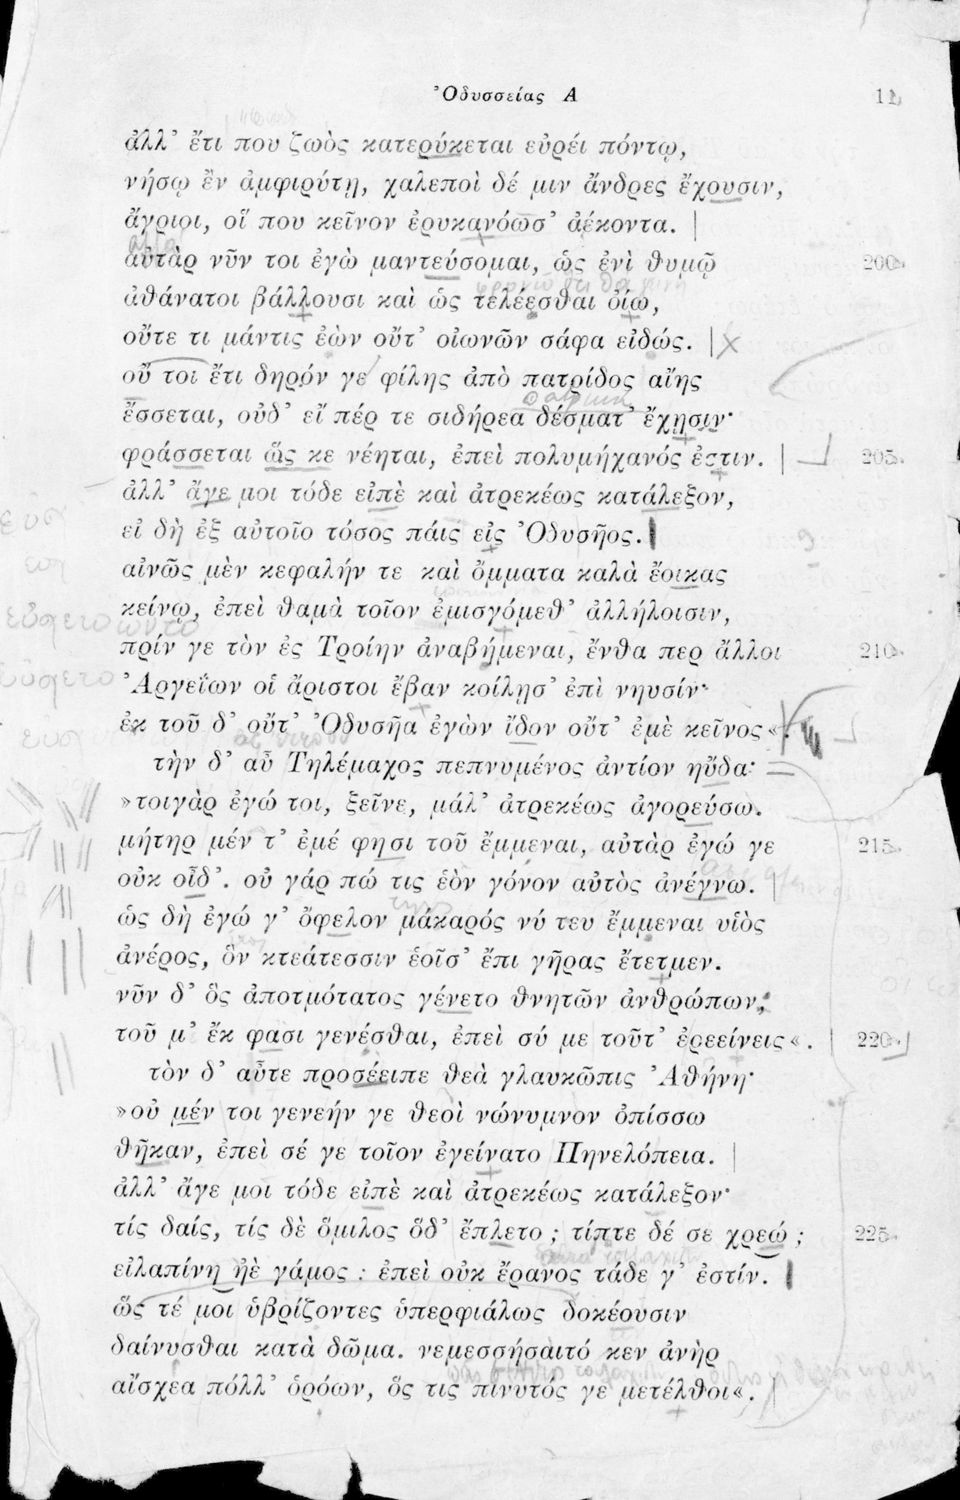 Ὀδυσσείας Α 11
ἀλλ’ ἔτι που ζωὸς κατερύκεται εὐρέι πόντῳ,
νήσῳ ἐν ἀμφιρύτῃ, χαλεποὶ δέ μιν ἄνδρες ἔχουσιν,
ἄγριοι, οἵ που κεῖνον ἐρυκανόωσ’ ἀέκοντα.
αὐτὰρ νῦν τοι ἐγὼ μαντεύσομαι, ὡς ἐνὶ θυμῷ 200
ἀθάνατοι βάλλουσι καὶ ὡς τελέεσθαι ὀίω,
οὔτε τι μάντις ἐὼν οὔτ’ οἰωνῶν σάφα εἰδώς.
οὔ τοι ἔτι δηρόν γε φίλης ἀπὸ πατρίδος αἴης
ἔσσεται, οὐδ’ εἴ πέρ τε σιδήρεα δέσματ’ ἔχῃσιν·
φράσσεται ὥς κε νέηται, ἐπεὶ πολυμήχανός ἐστιν. 205
ἀλλ’ ἄγε μοι τόδε εἰπὲ καὶ ἀτρεκέως κατάλεξον,
εἰ δὴ ἐξ αὐτοῖο τόσος πάις εἰς Ὀδυσῆος.
αἰνῶς μὲν κεφαλήν τε καὶ ὄμματα καλὰ ἔοικας
κείνῳ, ἐπεὶ θαμὰ τοῖον ἐμισγόμεθ’ ἀλλήλοισιν,
πρίν γε τὸν ἐς Τροίην ἀναβήμεναι, ἔνθα περ ἄλλοι 210
Ἀργείων οἱ ἄριστοι ἔβαν κοίλῃσ’ ἐπὶ νηυσίν·
ἐκ τοῦ δ’ οὔτ’ Ὀδυσῆα ἐγὼν ἴδον οὔτ’ ἐμὲ κεῖνος«.
τὴν δ’ αὖ Τηλέμαχος πεπνυμένος ἀντίον ηὔδα·
»τοιγὰρ ἐγώ τοι, ξεῖνε, μάλ’ ἀτρεκέως ἀγορεύσω.
μήτηρ μέν τ’ ἐμέ φησι τοῦ ἔμμεναι, αὐτὰρ ἐγώ γε 215
οὐκ οἶδ’. οὐ γάρ πώ τις ἑὸν γόνον αὐτὸς ἀνέγνω.
ὡς δὴ ἐγώ γ’ ὄφελον μάκαρός νύ τευ ἔμμεναι υἱὸς
ἀνέρος, ὃν κτεάτεσσιν ἑοῖσ’ ἔπι γῆρας ἔτετμεν.
νῦν δ’ ὃς ἀποτμότατος γένετο θνητῶν ἀνθρώπων,
τοῦ μ’ ἔκ φασι γενέσθαι, ἐπεὶ σύ με τοῦτ’ ἐρεείνεις«. 220
τὸν δ’ αὖτε προσέειπε θεὰ γλαυκῶπις Ἀθήνη·
»οὐ μέν τοι γενεήν γε θεοὶ νώνυμνον ὀπίσσω
θῆκαν, ἐπεὶ σέ γε τοῖον ἐγείνατο Πηνελόπεια.
ἀλλ’ ἄγε μοι τόδε εἰπὲ καὶ ἀτρεκέως κατάλεξον·
τίς δαίς, τίς δὲ ὅμιλος ὅδ’ ἔπλετο ; τίπτε δέ σε χρεώ ; 225
εἰλαπίνη ἠὲ γάμος ; ἐπεὶ οὐκ ἔρανος τάδε γ’ ἐστίν.
ὥς τέ μοι ὑβρίζοντες ὑπερφιάλως δοκέουσιν
δαίνυσθαι κατὰ δῶμα. νεμεσσήσαιτό κεν ἀνὴρ
αἴσχεα πόλλ’ ὁρόων, ὅς τις πινυτός γε μετέλθοι«.